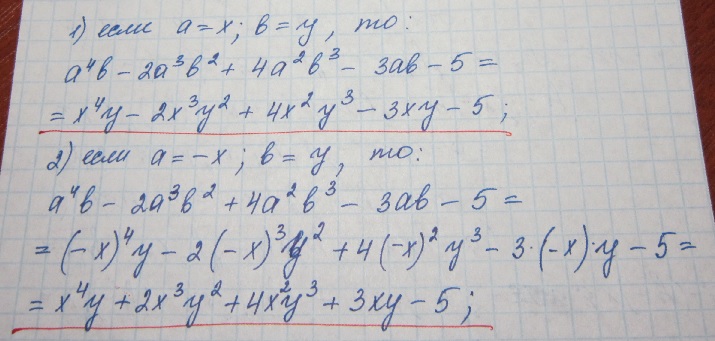 1) если a = x; в = y, то:
a⁴в − 2a³в² + 4a²в³ − 3aв − 5 =
= x⁴y − 2x³y² + 4x²y³ − 3xy − 5;
2) если a = −x; в = y, то:
a⁴в − 2a³в² + 4a²в³ − 3aв − 5 =
= (−x)⁴y − 2(−x)³y² + 4(−x)²y³ − 3·(−x)·y − 5 =
= x⁴y + 2x³y² + 4x²y³ + 3xy − 5;